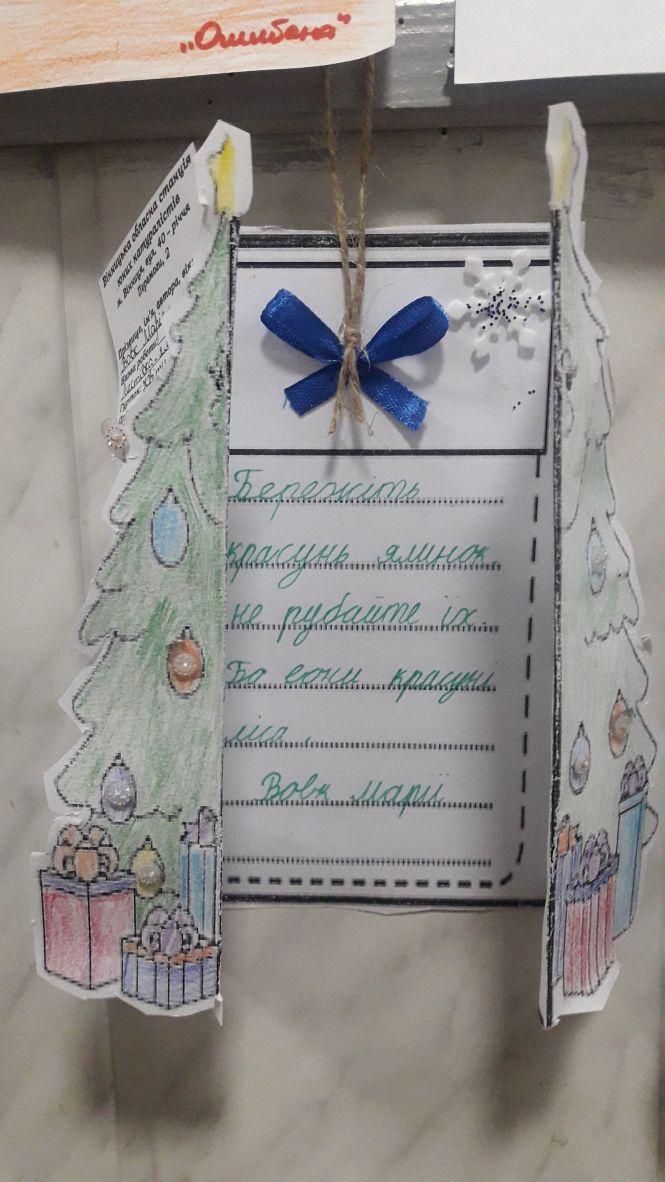 „Ошибана"
Вінницька обласна станція
юних натуралістів
м. Вінниця, вул. 40 - річчя
Перемоги, 2
Прізвище, ім'я, автора, вік:
Вовк Марі
Назва роботи:
Бережіть
красунь ялинок.
не рубайте їх.
Бо вони красуні
ліса.
Вовк Марії